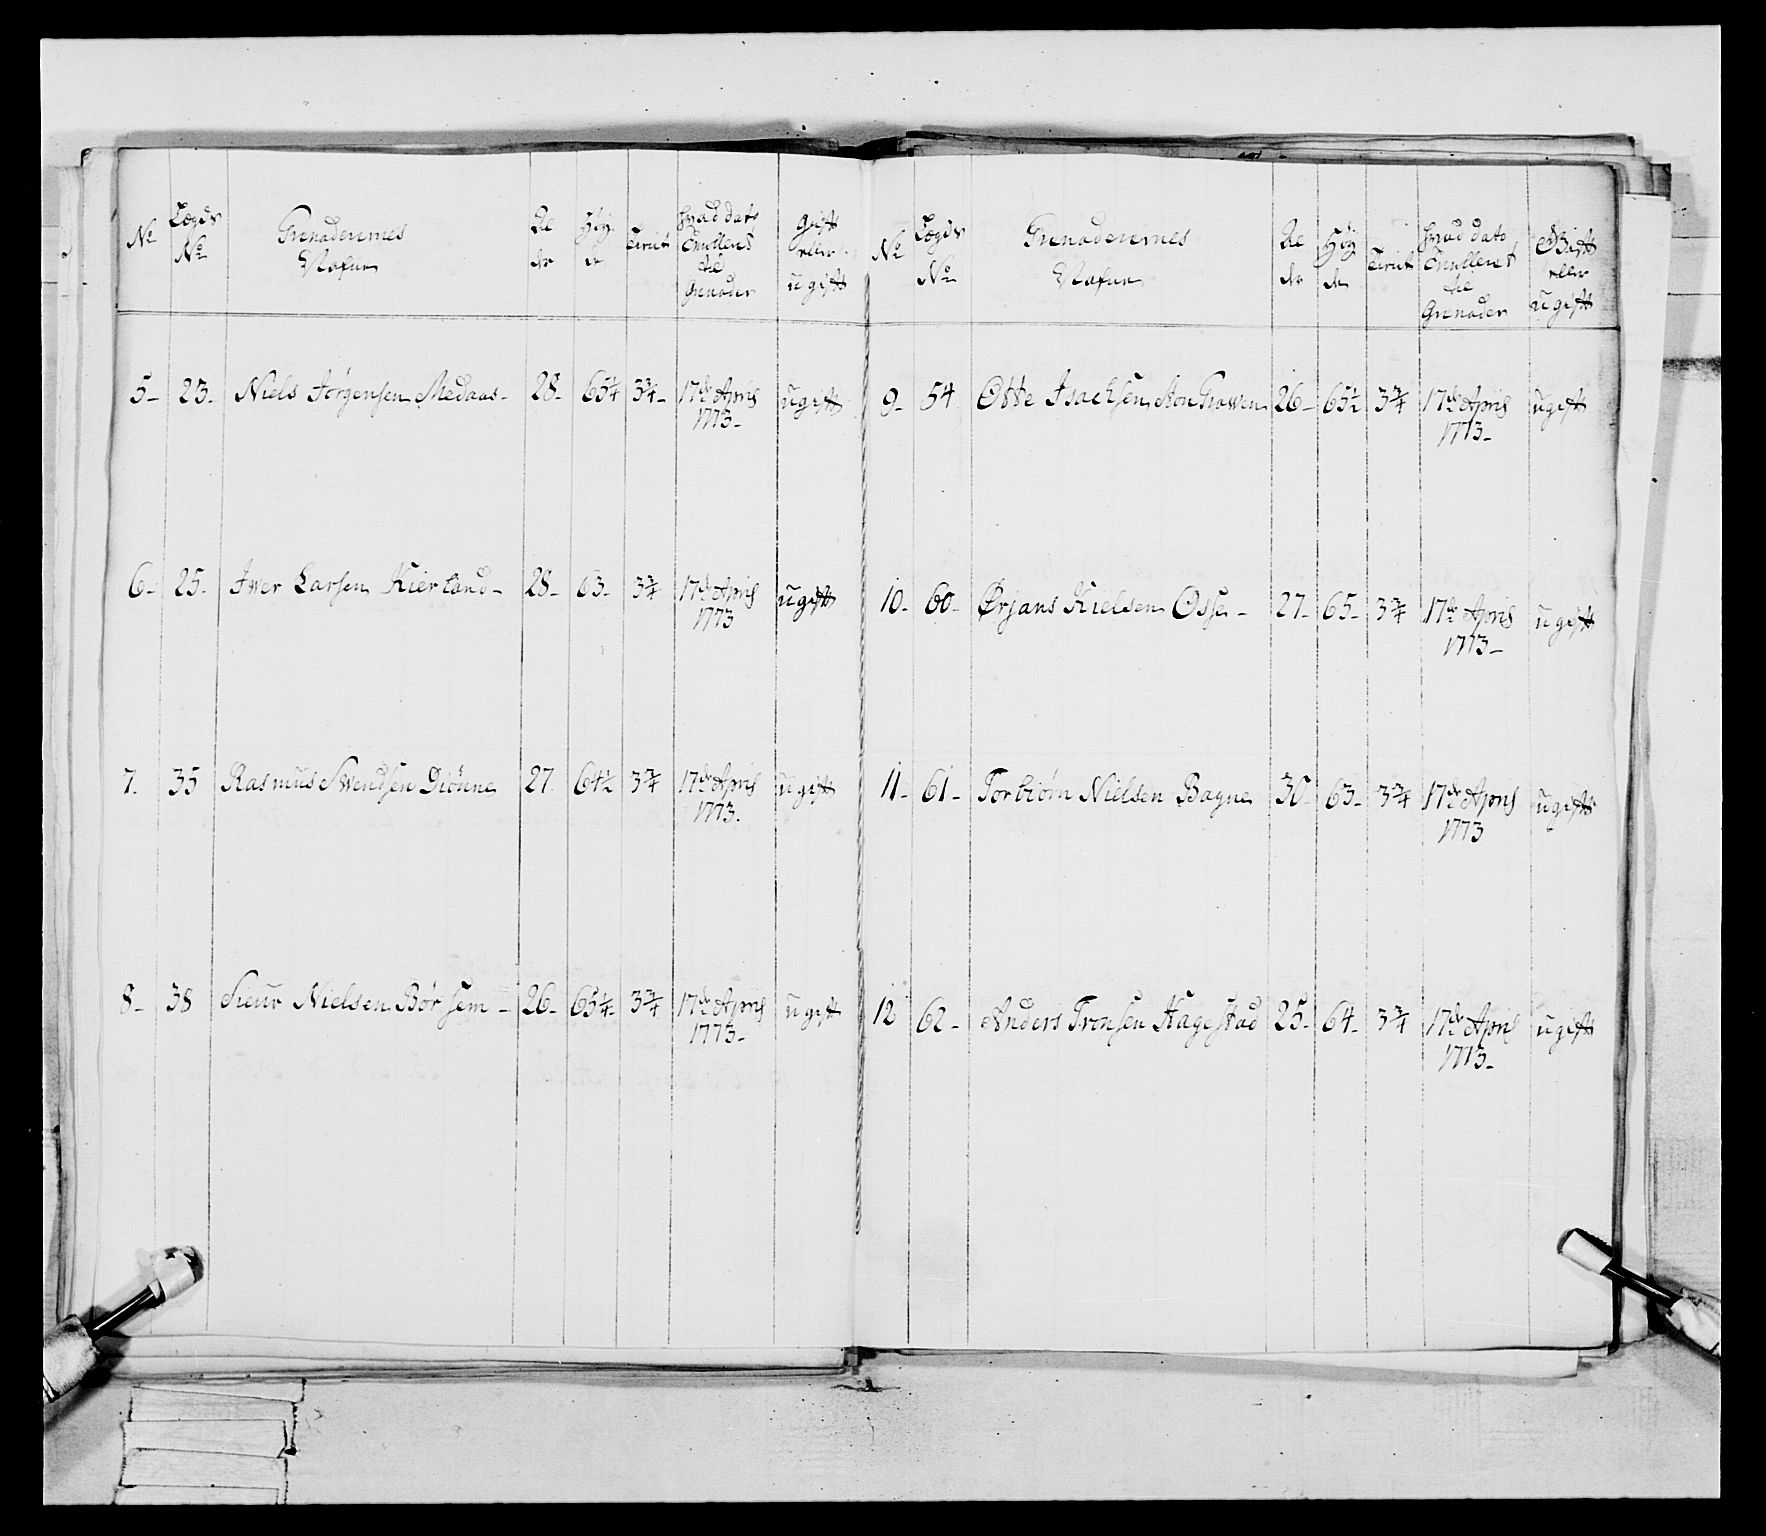 No
Lægds
No
Grenaderernes
Nafne
Al
der
Høy
de
Tient
hvad dato
Enrollert
til
Grenader
Gift
eller
ugift
5- 23. Niels Jørgensen Medaas- 28- 65¼ 3¾- 17de April ugift
1773-
6- 25. Iwer Larsen Kierland- 28- 63- 3¾ 17de April ugift
1773
7. 35 Rasmus Swendsen Diönne 27. 64½ 3¾ 17de April ugift
1773.
8- 38 Sieur Nielsen Børsem- 26- 65¼- 3¾ 17de April ugift
1773-
No
Lægds
No
Grenaderernes
Nafne
Al
der
Høy
de
Tient
hvad dato
Enrollert
til
Grenader
Gift
eller
ugift
9- 54 Otte Isachsen 26- 65½ 3¾ 17de April ugift
1773-
10- 60- Ørjans Kielsen Osse- 27- 65- 3¾ 17de April ugift
1773-
11- 61- Torbiørn Nielsen Bagne 30- 63- 3¾ 17de April ugift
1773
12 62- Anders Tronsen Hagestad 25- 64- 3¾ 17de April ugift
1773-